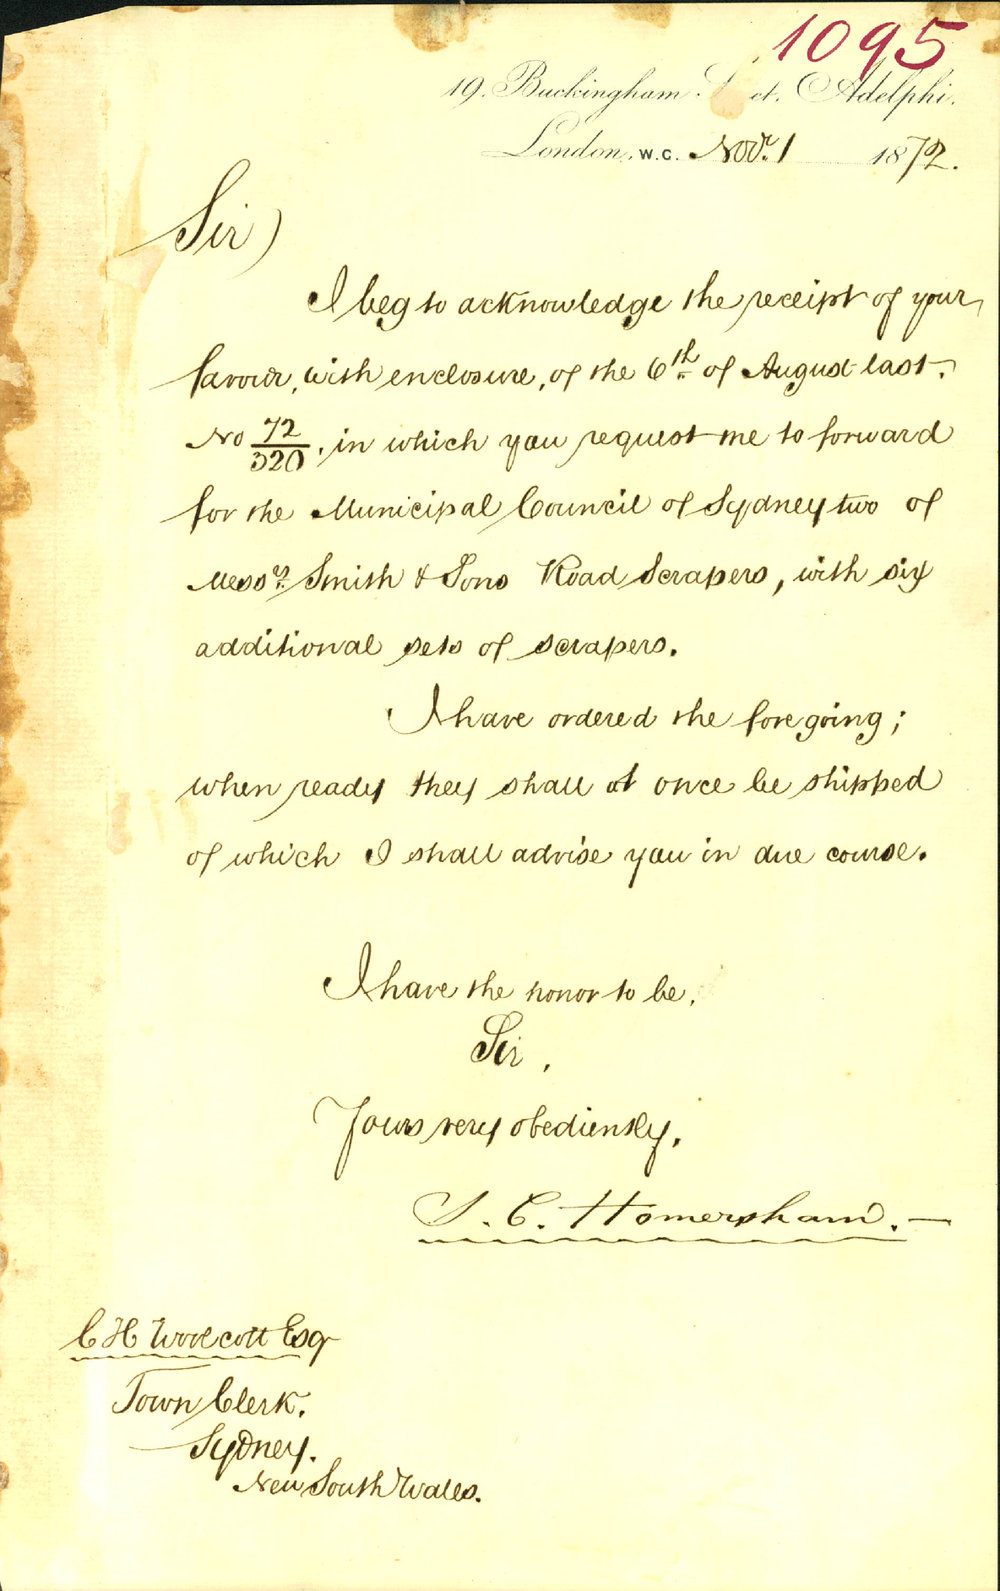 1095
19. Buckingham Adelphi.
London, W.C. Novr. 1 1872.
Sir)
I beg to acknowledge the receipt of your
favour, with enclosure, of the 6th. of August last.
No 72/520, in which you request me to forward
for the Municipal Council of Sydney two of
Messrs. Smith & Sons Road Scrapers, with six
additional sets of scrapers.
I have ordered the foregoing;
when ready they shall at once be shipped
of which I shall advise you in due course.
I have the honor to be,
Sir,
Yours very obediently,
S. C. Homersham.
C H Woolcott Esq
Town Clerk.
Sydney.
New South Wales.